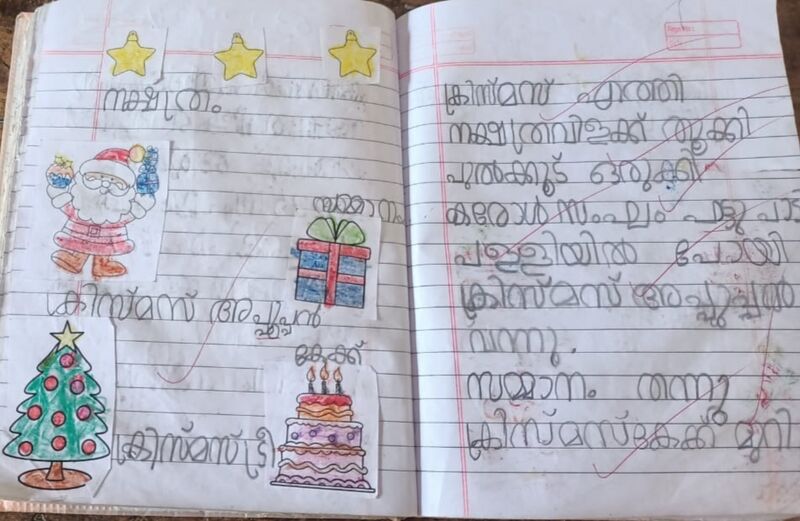 നക്ഷത്രം
സമ്മാനം
ക്രിസ്മസ് അപ്പൂപ്പൻ
കേക്ക്
ക്രിസ്മസ് ട്രീ
ക്രിസ്മസ് എത്തി
നക്ഷത്രവിളക്ക് തൂക്കി
പുൽക്കൂട് ഒരുക്കി
കരോൾ സംഘം പാട്ടു പാടി
പള്ളിയിൽ പോയി
ക്രിസ്മസ് അപ്പൂപ്പൻ
വന്നു.
സമ്മാനം തന്നു
ക്രിസ്മസ്കേക്ക് മുറി